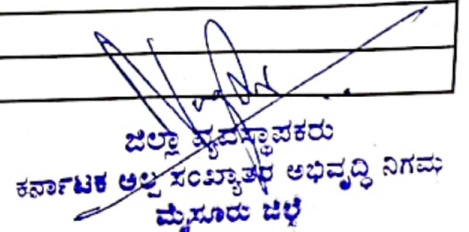 ಜಿಲ್ಲಾ ವ್ಯವಸ್ಥಾಪಕರು
ಕರ್ನಾಟಕ ಅಲ್ಪ ಸಂಖ್ಯಾತರ ಅಭಿವೃದ್ಧಿ ನಿಗಮ
ಮೈಸೂರು ಜಿಲ್ಲೆ